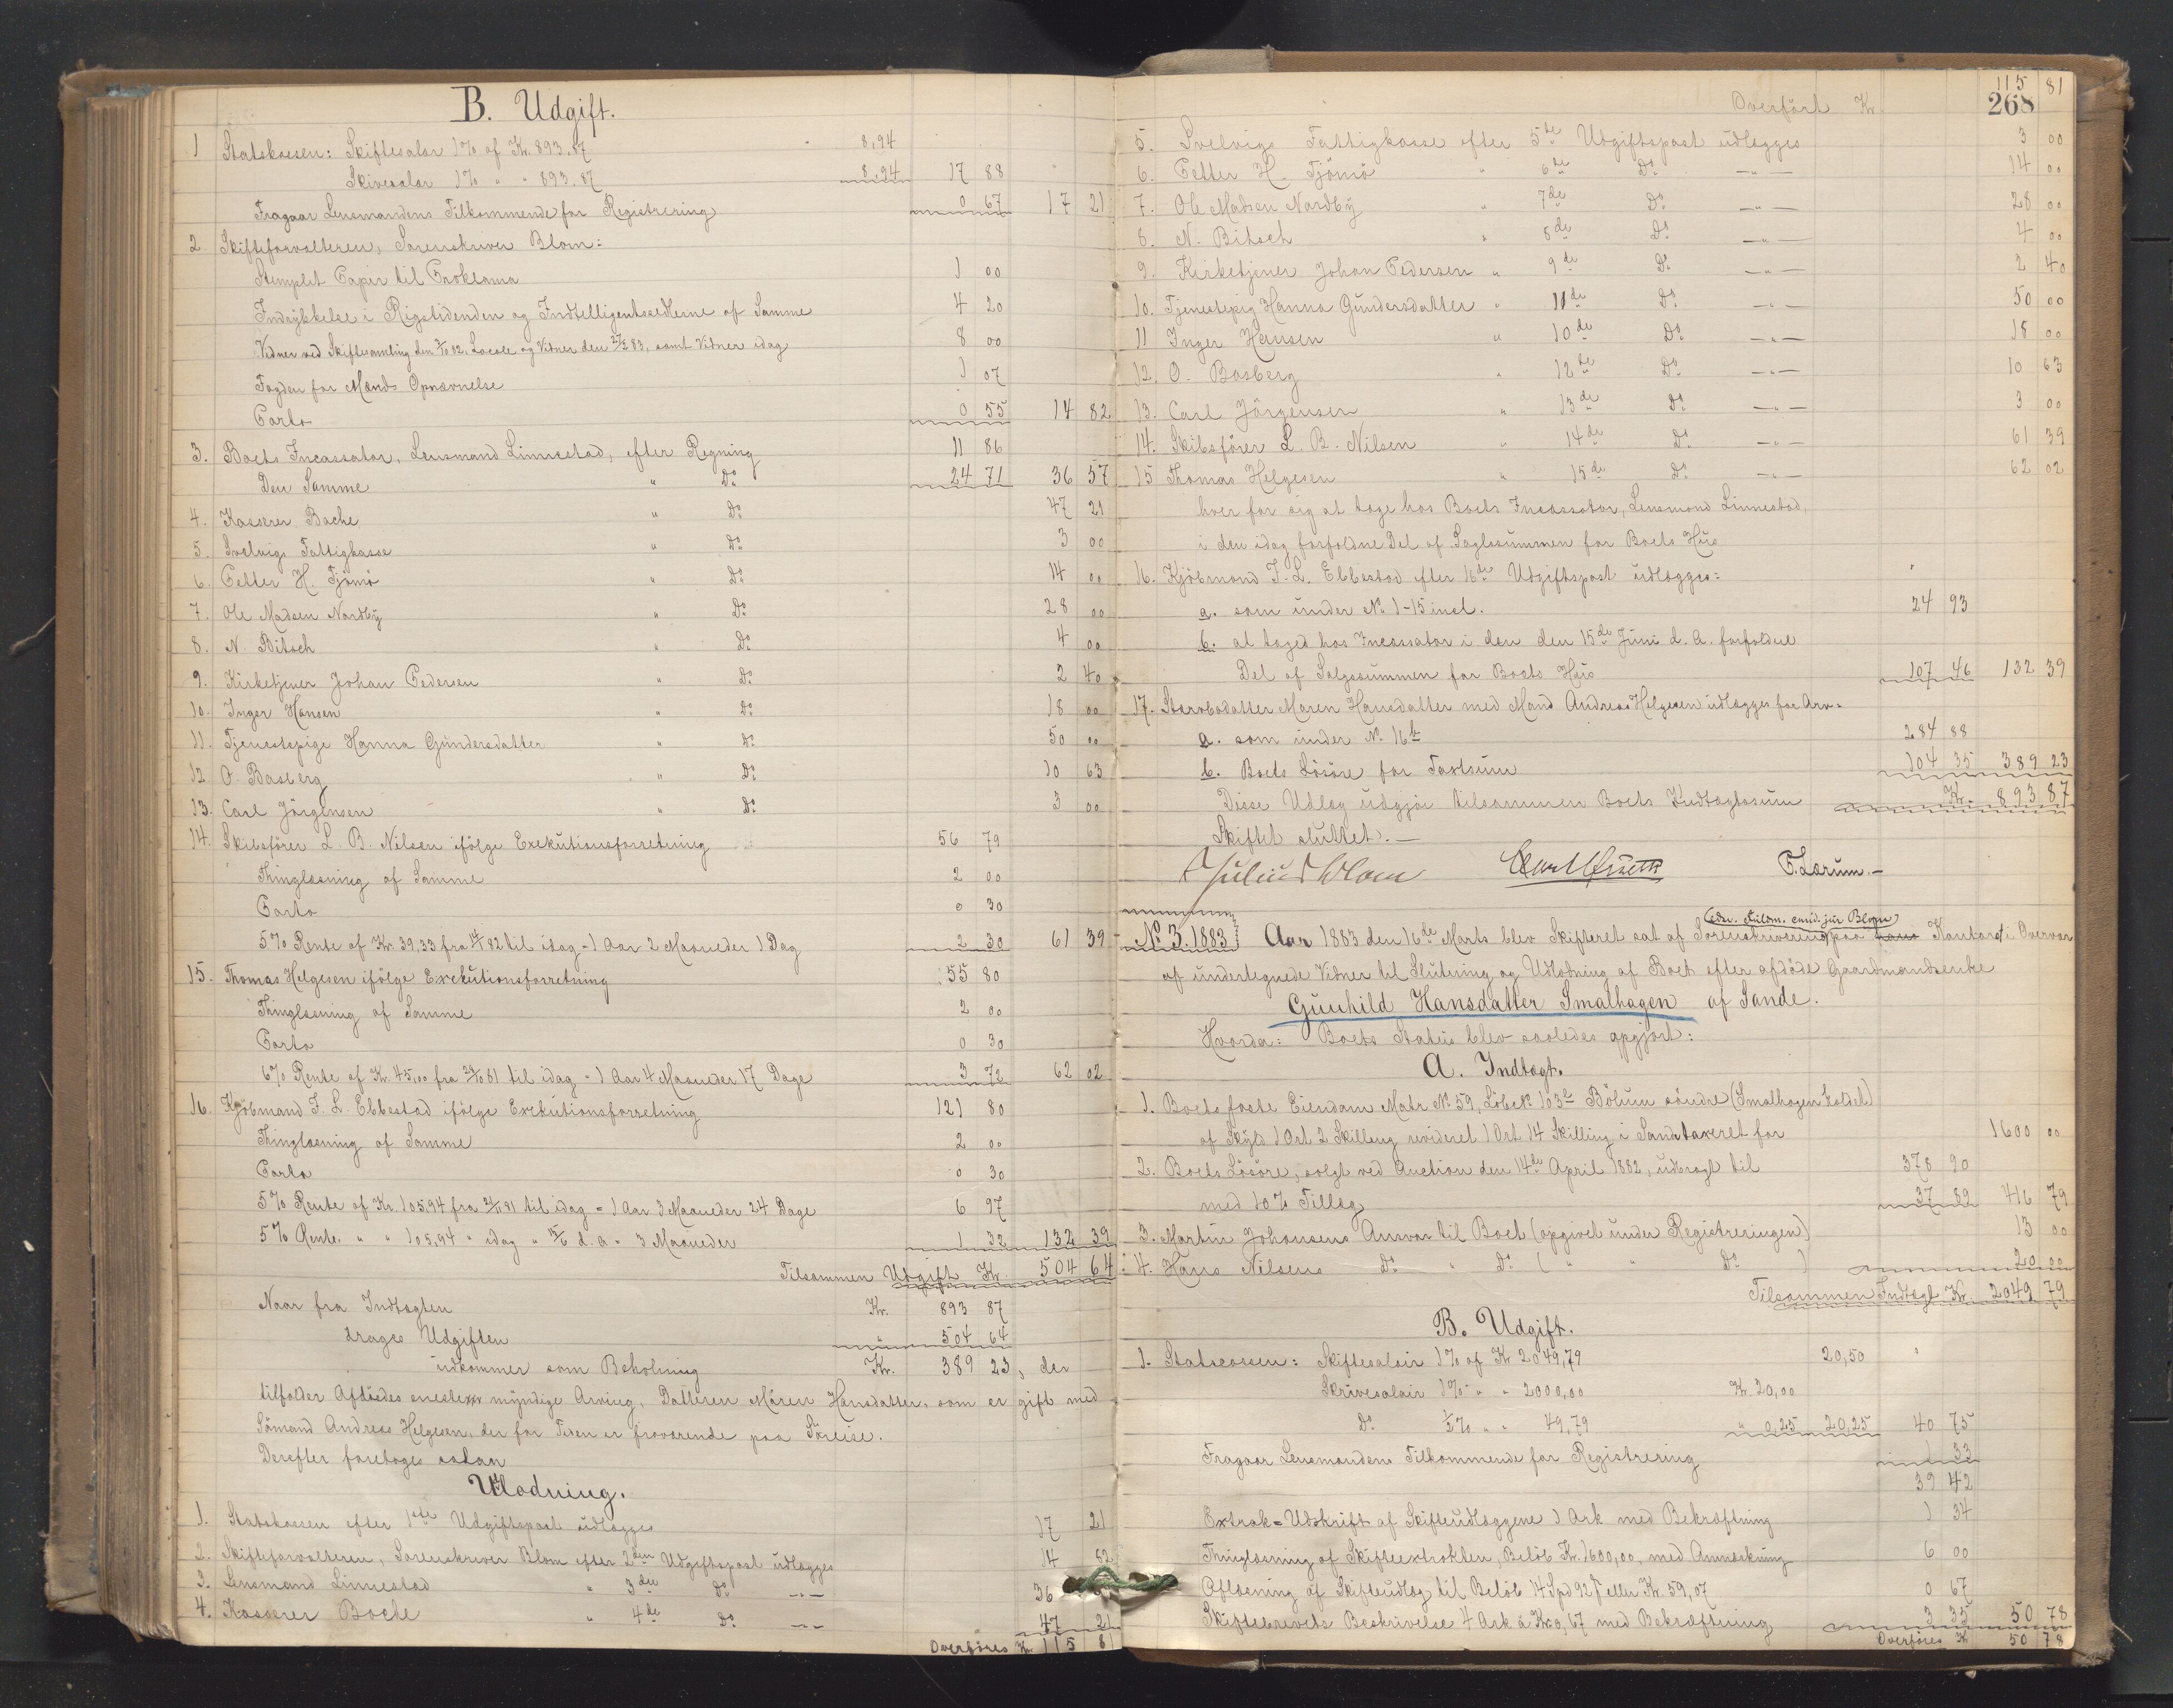 B. Udgift.
1 Statskassen: Skiftesalær 1% af Kr. 893.87 8,94
Skrivesalær 1% " " 893.87 8,94 17 88
Fragaar Lensmandens Tilkommende for Registrering 0 67 17 21
2. Skifteforvalteren, Sorenskriver Blom:
Stemplet Papir til Proklama 1 00
Indrykkelse i Rigstidenden og Indtelligentssedlerne af Samme 4 20
Vidner ved Skiftesamling den 3/10 82, Locale og Vidner den 27/2 83, samt Vidner idag 8 00
Fogden for Mænds Opnævnelse 1 07
Porto 0 55 14 82
3. Boets Incassator, Lensmand Linnestad, efter Regning 11 86
Den Samme " Do 24 71 36 57
4. Kasserer Bache " Do 47 21
5. Svelvigs Fattigkasse " Do 3 00
6. Petter H. Tjömö " Do 14 00
7. Ole Madsen Nordby " Do 28 00
8. N. Bitsch " Do 4 00
9. Kirketjener Johan Pedersen " Do 2 40
10. Inger Hansen " Do 18 00
11. Tjenestepige Hanna Gundersdatter " Do 50 00
12 O. Basberg " Do 10 63
13. Carl Jörgensen " Do 3 00
14. Skibsförer L. B. Nilsen ifölge Exekutionsforretning 56 79
Thinglæsning af Samme 2 00
Porto 0 30
5% Rente af Kr. 39,33 fra 14/1 82 til idag - 1 Aar 2 Maaneder 1 Dag 2 30 61 39
15. Thomas Helgesen ifölge Exekutionsforretning 55 80
Thinglæsning af Samme 2 00
Porto 0 30
6% Rente af Kr. 45,00 fra 29/10 81 til idag - 1 Aar 4 Maaneder 17 Dage 3 72 62 02
16. Kjöbmand F. L. Ebbestad ifölge Exekutionsforretning 121 80
Thinglæsning af Samme 2 00
Porto 0 30
5% Rente af Kr. 105,94 fra 21/11 81 til idag = 1 Aar 3 Maaneder 24 Dage 6 97
5% Rente " " 105,94 " idag " 15/6 d. a. = 3 Maaneder 1 32 132 39
Tilsammen Udgift Kr. 504 64
Naar fra Indtægten Kr. 893 87
drages Udgiften " 504 64
udkommer som Beholning Kr. 389 23, der
tilfalder Afdödes eneste myndige Arving, Datteren Maren Hansdatter, som er gift med
Sömand Andreas Helgesen, der for Tiden er fraværende paa Söreise.
Derefter foretoges saadan
Udlodning.
1. Statskassen efter 1ste Udgiftspost udlægges 17 21
2. Skifteforvalteren, Sorenskriver Blom efter 2den Udgiftspost udlægges 14 82
3. Lensmand Linnestad " 3die Do —"— 36
4. Kasserer Bache " 4de Do —"— 47 21
Overföres Kr. 115 81
268
Overfört Kr. 115 81
5. Svelvigs Fattigkasse efter 5te Udgiftspost udlægges 3 00
6. Petter H. Tjömö " 6te Do —"— 14 00
7. Ole Madsen Nordby " 7de Do —"— 28 00
8. N. Bitsch " 8de Do —"— 4 00
9. Kirketjener Johan Pedersen " 9de Do —"— 2 40
10. Tjenestepig Hanna Gundersdatter " 11de Do —"— 50 00
11 Inger Hansen " 10de Do —"— 18 00
12. O. Basberg " 12te Do —"— 10 63
13. Carl Jörgensen " 13de Do —"— 3 00
14. Skibsförer L. B. Nilsen " 14de Do —"— 61 39
15 Thomas Helgesen " 15de Do —"— 62 02
hver for sig at tage hos Boets Incassator, Lensmand Linnestad,
i den idag forfaldne Del af Saglssummen for Boets Hus
16. Kjöbmand F. L. Ebbestad efter 16de Udgiftspost udlægges:
a. som under No 1-15 incl. 24 93
b. at tages hos Incassator i den den 15de Juni d. a. forfaldne
Del af Salgssummen for Boets Hus 107 46 132 39
17. Stervbodatter Maren Hansdatter med Mand Andreas Helgesen udlægges for Arv:
a. som under No 16 b 284 88
b. Boets Lösöre for Taxtsum 104 35 389 23
Disse Udlæg udgjör tilsammen Boets Indtægtssum Kr. 893 87
Skiftet sluttet. —
Julius Blom P. Lærum. —
No 3. 1883 Aar 1883 den 16de Marts blev Skifteret sat af Sorenskriveren paa hans Kontor i Overvær
(edsv. Fuldm. cand. jur Blom)
af undertegnede Vidner til Slutning og Udlodning af Boet efter afdöde Gaardmandsenke
Gunhild Hansdatter Smalhagen af Sande.
Hvorda: Boets Status blev saaledes opgjort:
A. Indtægt.
1. Boets faste Eiendom Matr No 59, Löbe No 103 a Bölum söndre (Smalhagen kaldet)
af Skyld 1 Ort 2 Skilling revideret 1 Ort 14 Skilling i Sande taxeret for 1600 00
2. Boets Lösöre, solgt ved Auction den 14de April 1882, udbragt til 378 90
med 10% Tillæg 37 89 416 79
3. Martin Johansens Ansvar til Boet (opgivet under Registreringen) 13 00
4. Hans Nilsens Do " Do ( " " Do ) 20 00
Tilsammen Indtægt Kr. 2049 79
B. Udgift.
1. Statscassen: Skiftesalair 1% af Kr 2049,79 20,50
Skrivesalair 1% " " 2000,00 Kr. 20,00
Do ½% " " 49,79 " 0,25 20,25 40 75
Fragaar Lensmandens Tilkommende for Registrering 1 33
39 42
Extrak=Udskrift af Skifteudlæggene 1 Ark med Bekræftning 1 34
Thinglæsning af Skifteextrakten, Belöb Kr. 1600,00, med Anmærkning 6 00
Aflæsning af Skifteudlæg til Belöb 14 Spd 92 ß eller Kr. 59,07 0 67
Skiftebrevets Beskrivelse 4 Ark à Kr. 0,67 med Bekræftning 3 35 50 78
Overföres Kr 50 78